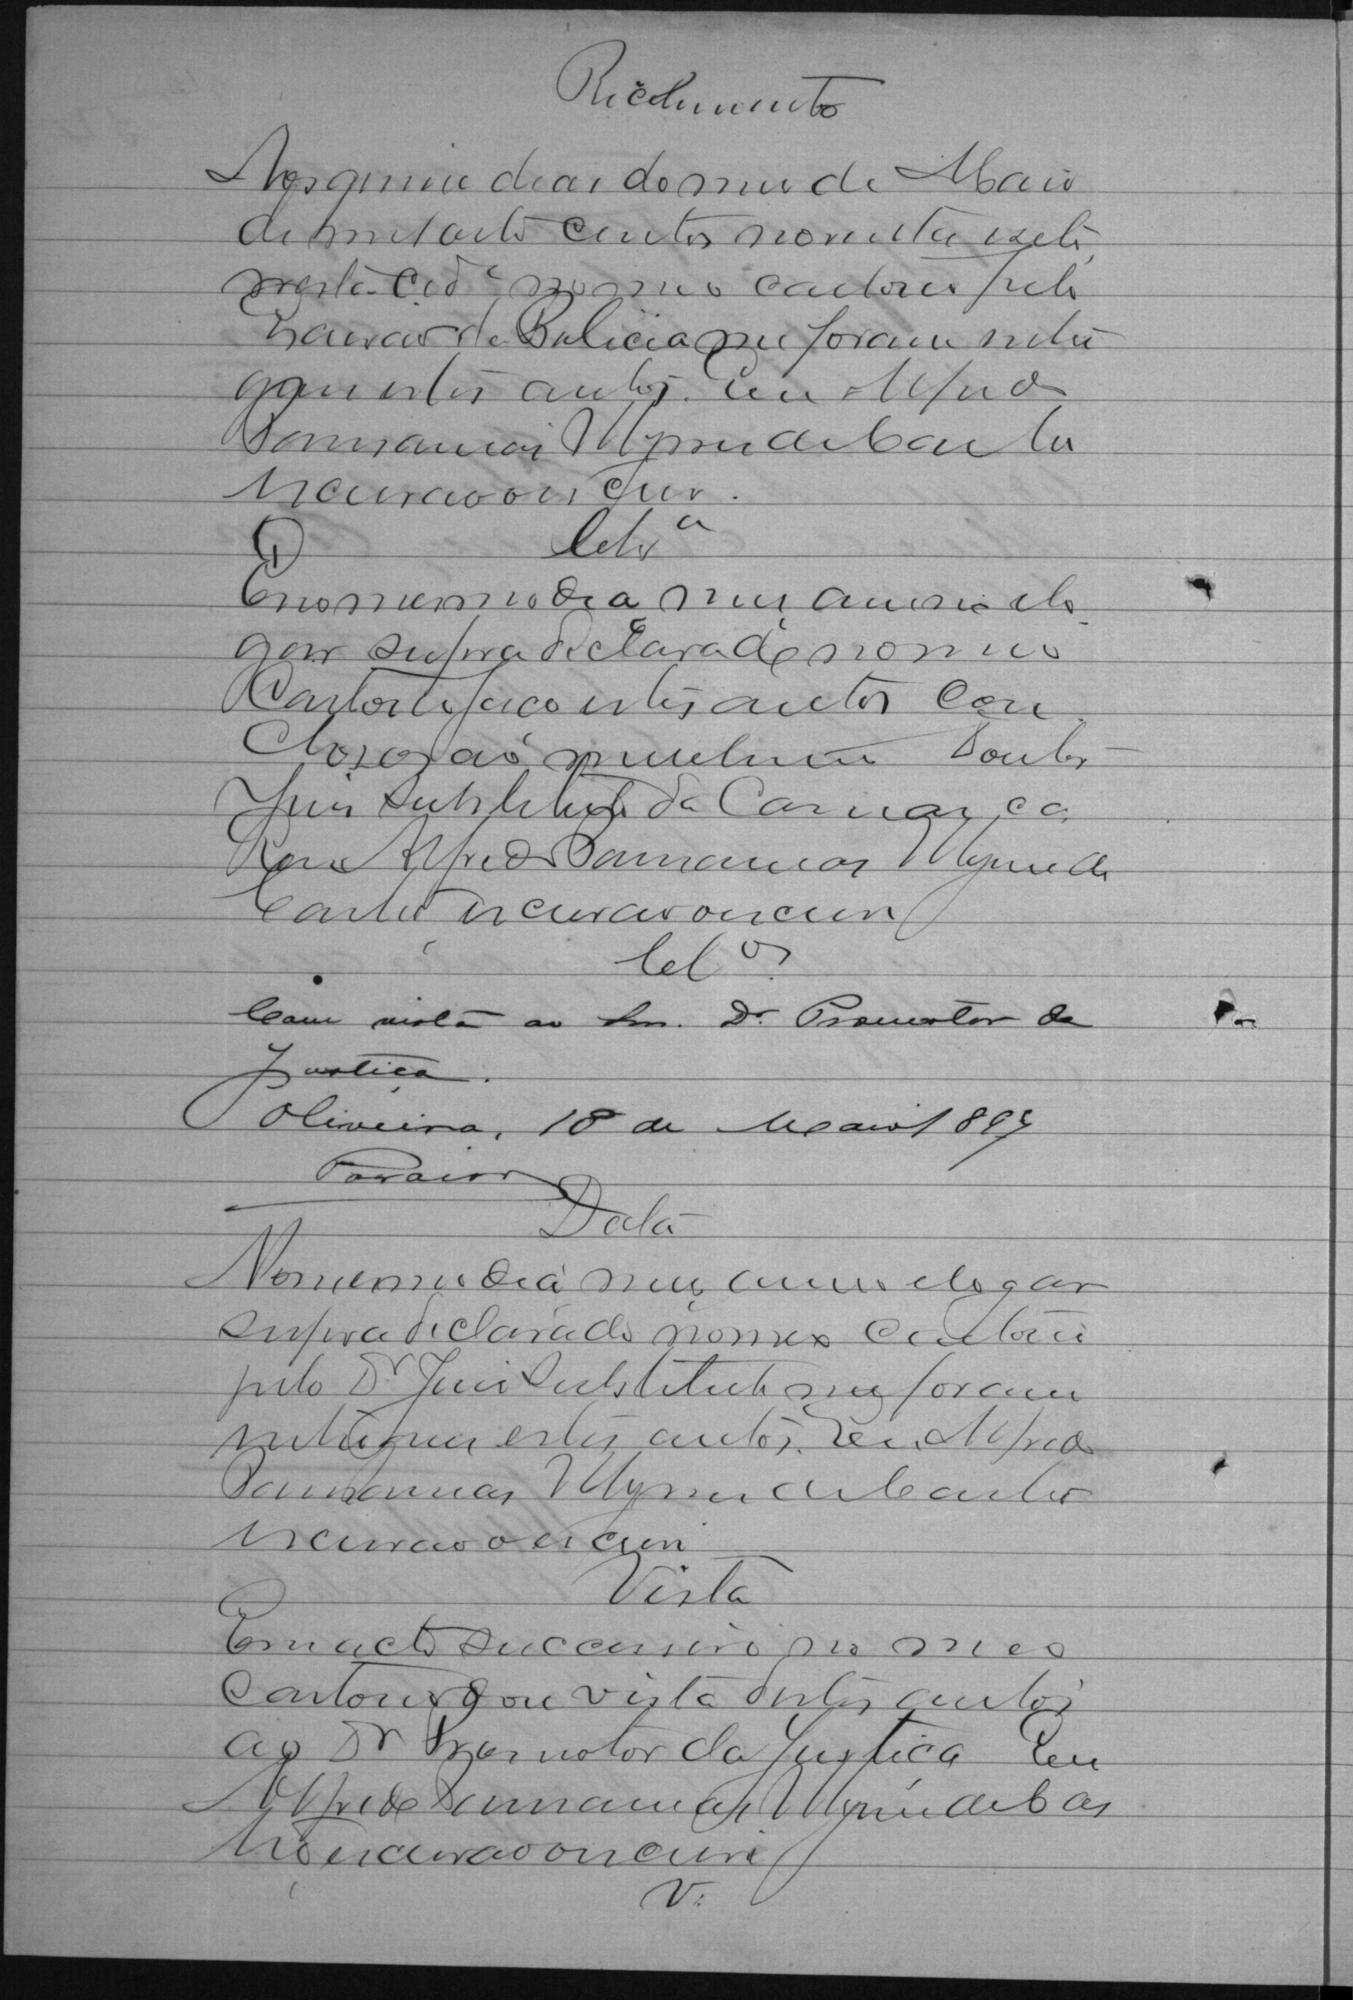 Recebimento
Aos quinse dias do mes de Maio
de mil oito centos noventa e sete
nesta cid^e no meo cartorio pelo
Escrivão da Policia me foram entre
gues estes autos. Eu Alfredo
de Castro
Escrivão o escrevi.
Cls^a
E no mesmo dia mes anno e lo
gar supra declarado no meo
Cartorio faço estes autos con
clusos ao meretissimo Doutor
Juis Substituto da Comarca
Eu Alfredo de
Castro Escrivão o escrevi
Cl^os
Com vista ao Snr. Dr. Promotor da
Justiça.
Oliveira, 18 de Maio 1897
Data
No mesmo dia mes anno e logar
supra declarado no meo Cartorio
pelo Dr Juis Substituto me foram
entregues estes autos. Eu Alfredo
de Castro
Escrivão o escrevi
Vista
Em acto successivo no meo
Cartorio dou vista destes autos
ao Dr Promotor da Justiça Eu
Alfredo de Cas
tro Escrivão o escrevi
V.